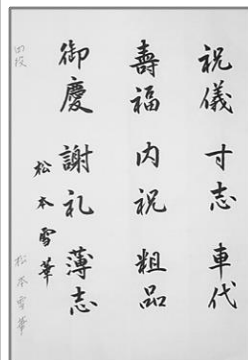 祝儀 寸志 車代
壽福 内祝 粗品
御慶 謝礼 薄志
松本雪華
四段 松本雪華